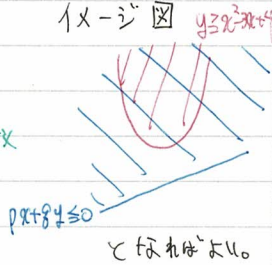 イメージ図
y≧x²-3x+4
x
px+qy≦0
となればよい。